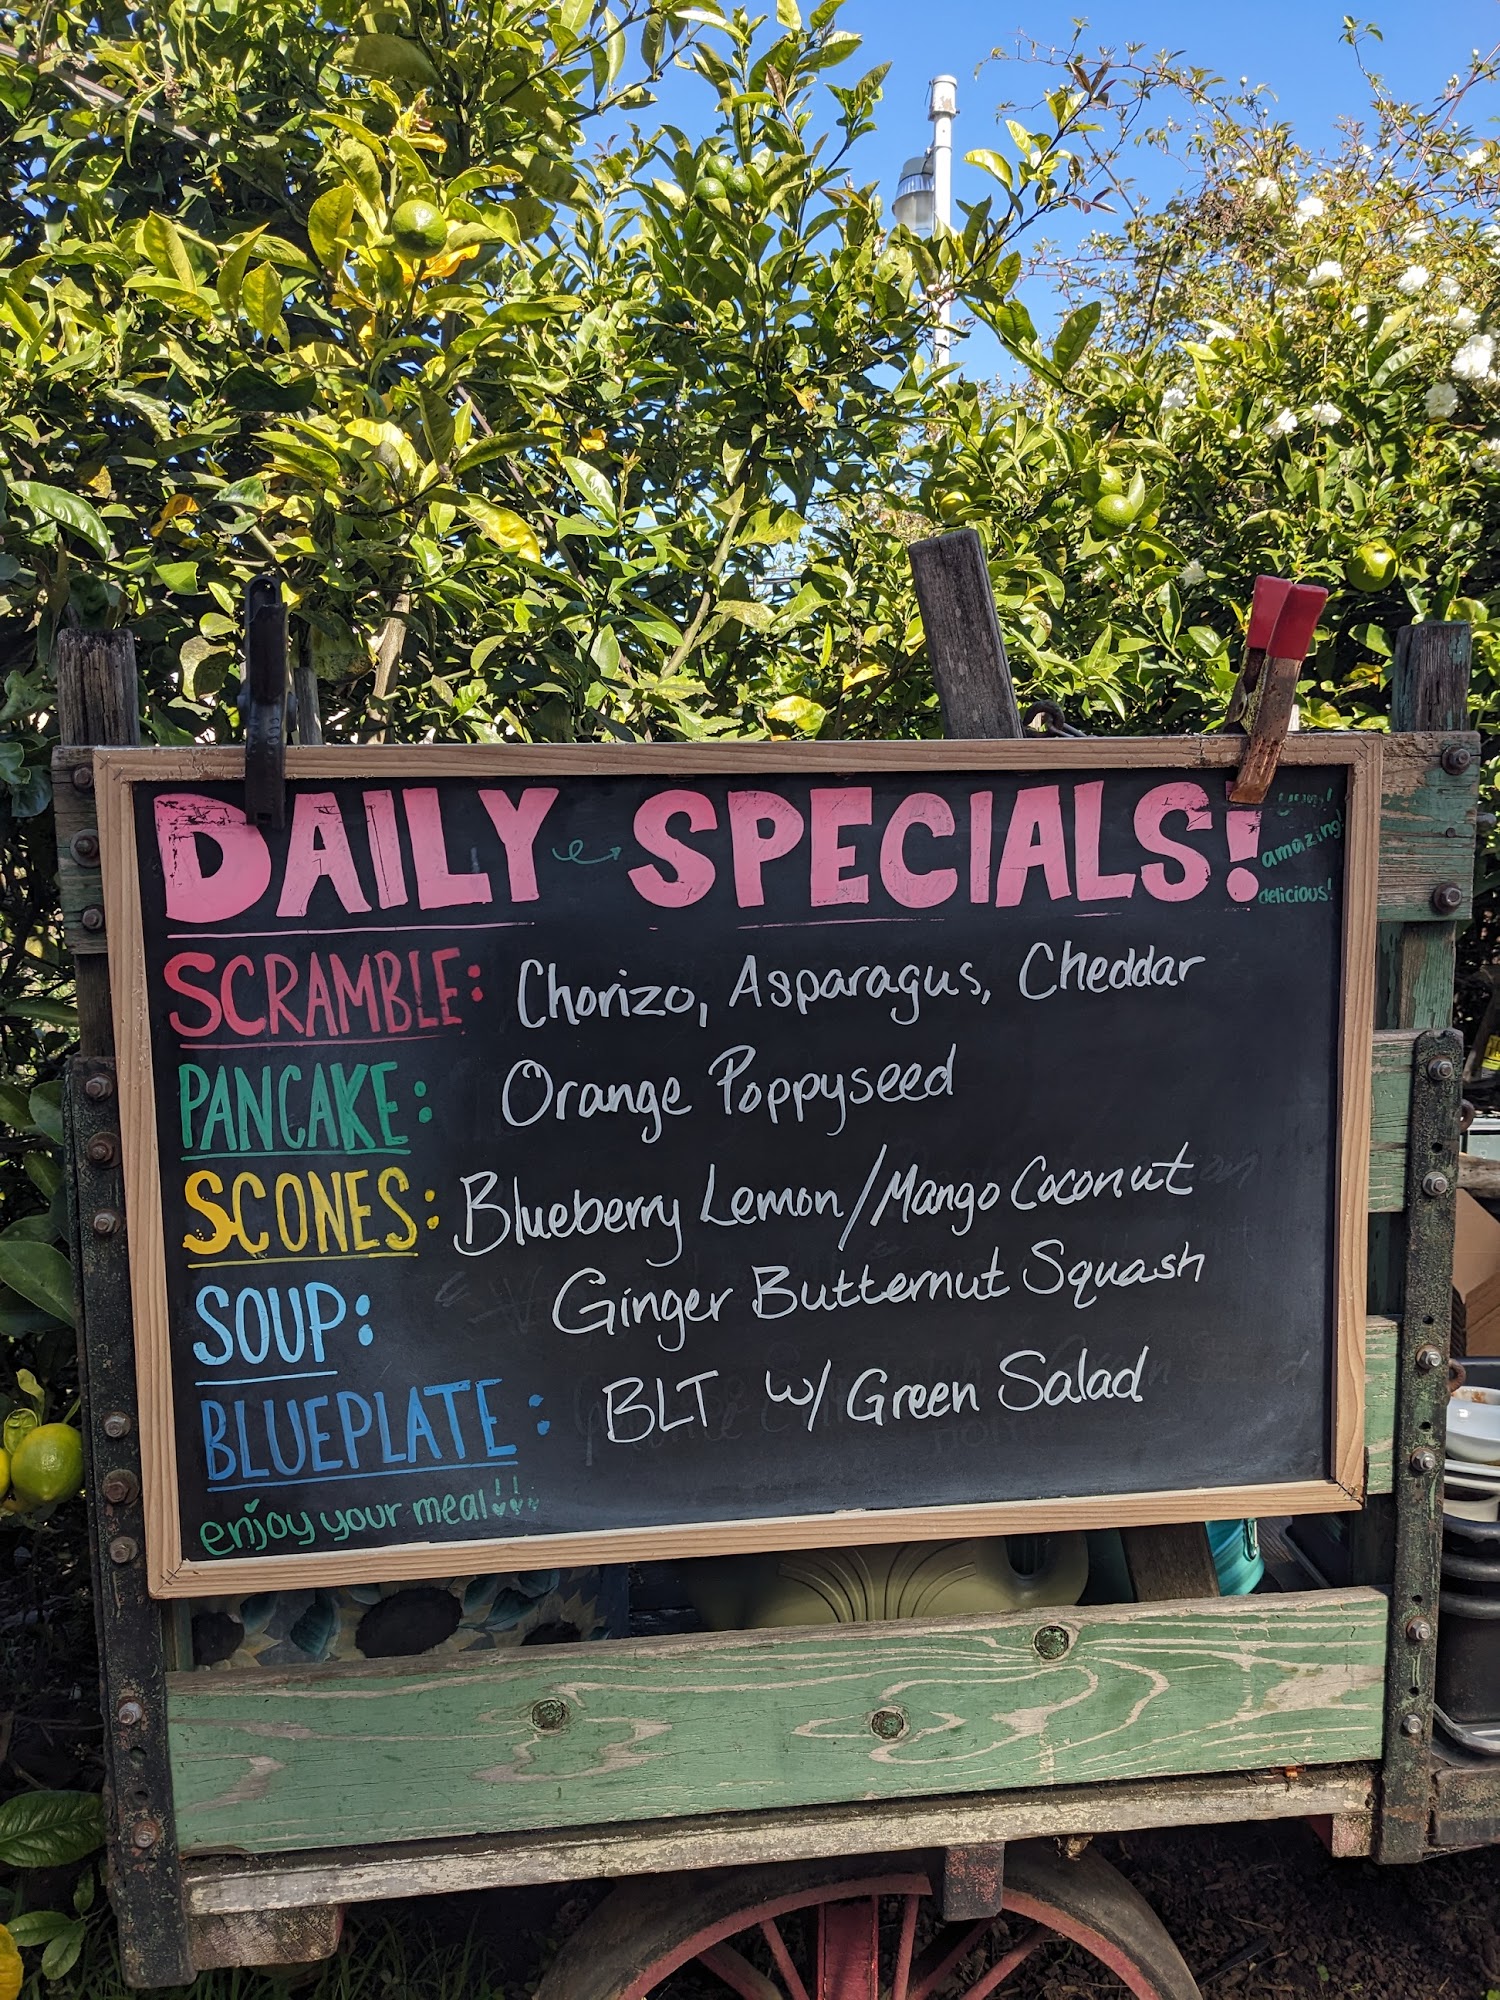 DAILY SPECIALS!
amazing!
delicious!
SCRAMBLE: Chorizo, Asparagus, Cheddar
PANCAKE: Orange Poppyseed
SCONES: Blueberry Lemon/Mango Coconut
SOUP: Ginger Butternut Squash
BLUEPLATE: BLT w/ Green Salad
enjoy your meal!!